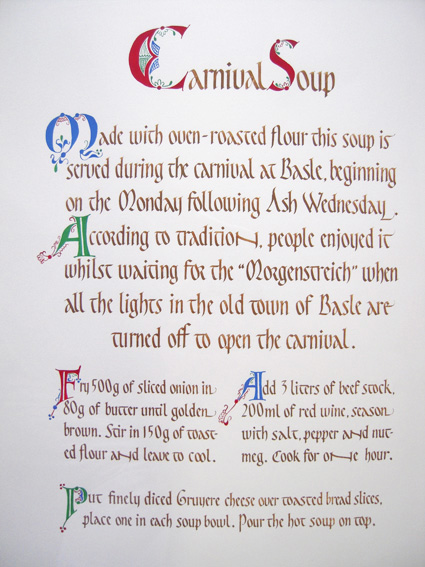 Carnival Soup
Made with oven-roasted flour this soup is
served during the carnival at Basle, beginning
on the Monday following Ash Wednesday.
According to tradition, people enjoyed it
whilst waiting for the "Morgenstreich" when
all the lights in the old town of Basle are
turned off to open the carnival.
Fry 500g of sliced onion in
80g of butter until golden
brown. Stir in 150g of toast-
ed flour and leave to cool.
Add 3 liters of beef stock,
200ml of red wine, season
with salt, pepper and nut-
meg. Cook for one hour.
Put finely diced Gruyere cheese over toasted bread slices,
place one in each soup bowl. Pour the hot soup on top.